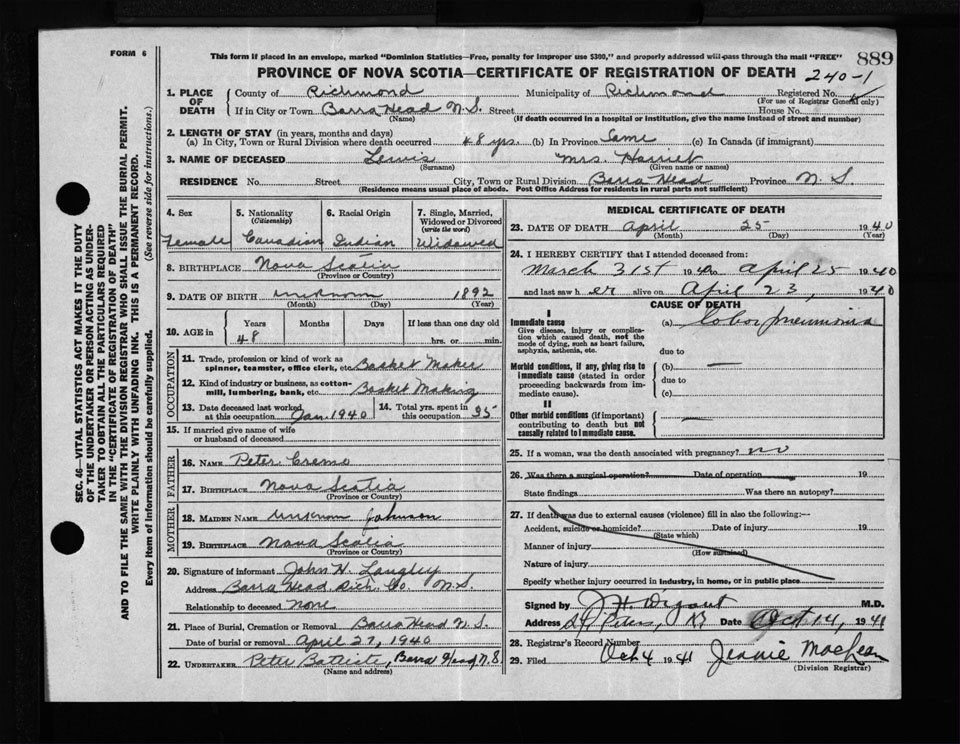 FORM 6
This form if placed in an envelope, marked "Dominion Statistics—Free, penalty for improper use $300," and properly addressed will pass through the mail "FREE"
889
PROVINCE OF NOVA SCOTIA—CERTIFICATE OF REGISTRATION OF DEATH
240-1
1. PLACE OF DEATH
County of Richmond Municipality of Richmond Registered No.
(For use of Registrar General only)
If in City or Town Barra Head N.S. Street House No.
(Name) (If death occurred in a hospital or institution, give the name instead of street and number)
2. LENGTH OF STAY (in years, months and days)
(a) In City, Town or Rural Division where death occurred 48 yrs. (b) In Province Same (c) In Canada (if immigrant)
3. NAME OF DECEASED Lewis Mrs. Harriet
(Surname) (Given name or names)
RESIDENCE No. Street City, Town or Rural Division Barra Head Province N.S.
(Residence means usual place of abode. Post Office Address for residents in rural parts not sufficient)
4. Sex 5. Nationality (Citizenship) 6. Racial Origin 7. Single, Married, Widowed or Divorced (write the word)
Female Canadian Indian Widowed
8. BIRTHPLACE Nova Scotia
(Province or Country)
9. DATE OF BIRTH unknown 1892
(Month) (Day) (Year)
10. AGE in Years Months Days If less than one day old
48 hrs. or min.
OCCUPATION
11. Trade, profession or kind of work as spinner, teamster, office clerk, etc. Basket Maker
12. Kind of industry or business, as cotton-mill, lumbering, bank, etc. Basket Making
13. Date deceased last worked at this occupation Jan. 1940 14. Total yrs. spent in this occupation 35
15. If married give name of wife or husband of deceased
FATHER
16. NAME Peter Cremo
17. BIRTHPLACE Nova Scotia
(Province or Country)
MOTHER
18. MAIDEN NAME unknown Johnson
19. BIRTHPLACE Nova Scotia
(Province or Country)
20. Signature of informant John H. Langley
Address Barra Head Rich. Co. N.S.
Relationship to deceased None
21. Place of Burial, Cremation or Removal Barra Head N.S.
Date of burial or removal April 27, 1940
22. UNDERTAKER Peter Battiste, Barra Head N.S.
(Name and address)
MEDICAL CERTIFICATE OF DEATH
23. DATE OF DEATH April 25 1940
(Month) (Day) (Year)
24. I HEREBY CERTIFY that I attended deceased from:
March 31st 1940 to April 25 1940
and last saw her alive on April 23, 1940
CAUSE OF DEATH
I
Immediate cause (a) Lobar pneumonia
Give disease, injury or complication which caused death, not the mode of dying, such as heart failure, asphyxia, asthenia, etc.
due to
Morbid conditions, if any, giving rise to immediate cause (stated in order proceeding backwards from immediate cause).
(b) —
due to
(c)
II
Other morbid conditions (if important) contributing to death but not causally related to immediate cause.
—
25. If a woman, was the death associated with pregnancy? no
26. Was there a surgical operation? Date of operation 19
State findings Was there an autopsy?
27. If death was due to external causes (violence) fill in also the following:—
Accident, suicide or homicide? Date of injury 19
(State which)
Manner of injury
(How sustained)
Nature of injury
Specify whether injury occurred in industry, in home, or in public place
Signed by M.D.
Address St. Peters, Date Oct 14, 1941
28. Registrar's Record Number
29. Filed Oct 4 1941 Jennie MacLean
(Division Registrar)
SEC. 46—VITAL STATISTICS ACT MAKES IT THE DUTY
OF THE UNDERTAKER OR PERSON ACTING AS UNDER-
TAKER TO OBTAIN ALL THE PARTICULARS REQUIRED
IN THE "CERTIFICATE OF REGISTRATION OF DEATH"
AND TO FILE THE SAME WITH THE DIVISION REGISTRAR WHO SHALL ISSUE THE BURIAL PERMIT.
WRITE PLAINLY WITH UNFADING INK. THIS IS A PERMANENT RECORD.
Every item of information should be carefully supplied. (See reverse side for instructions.)